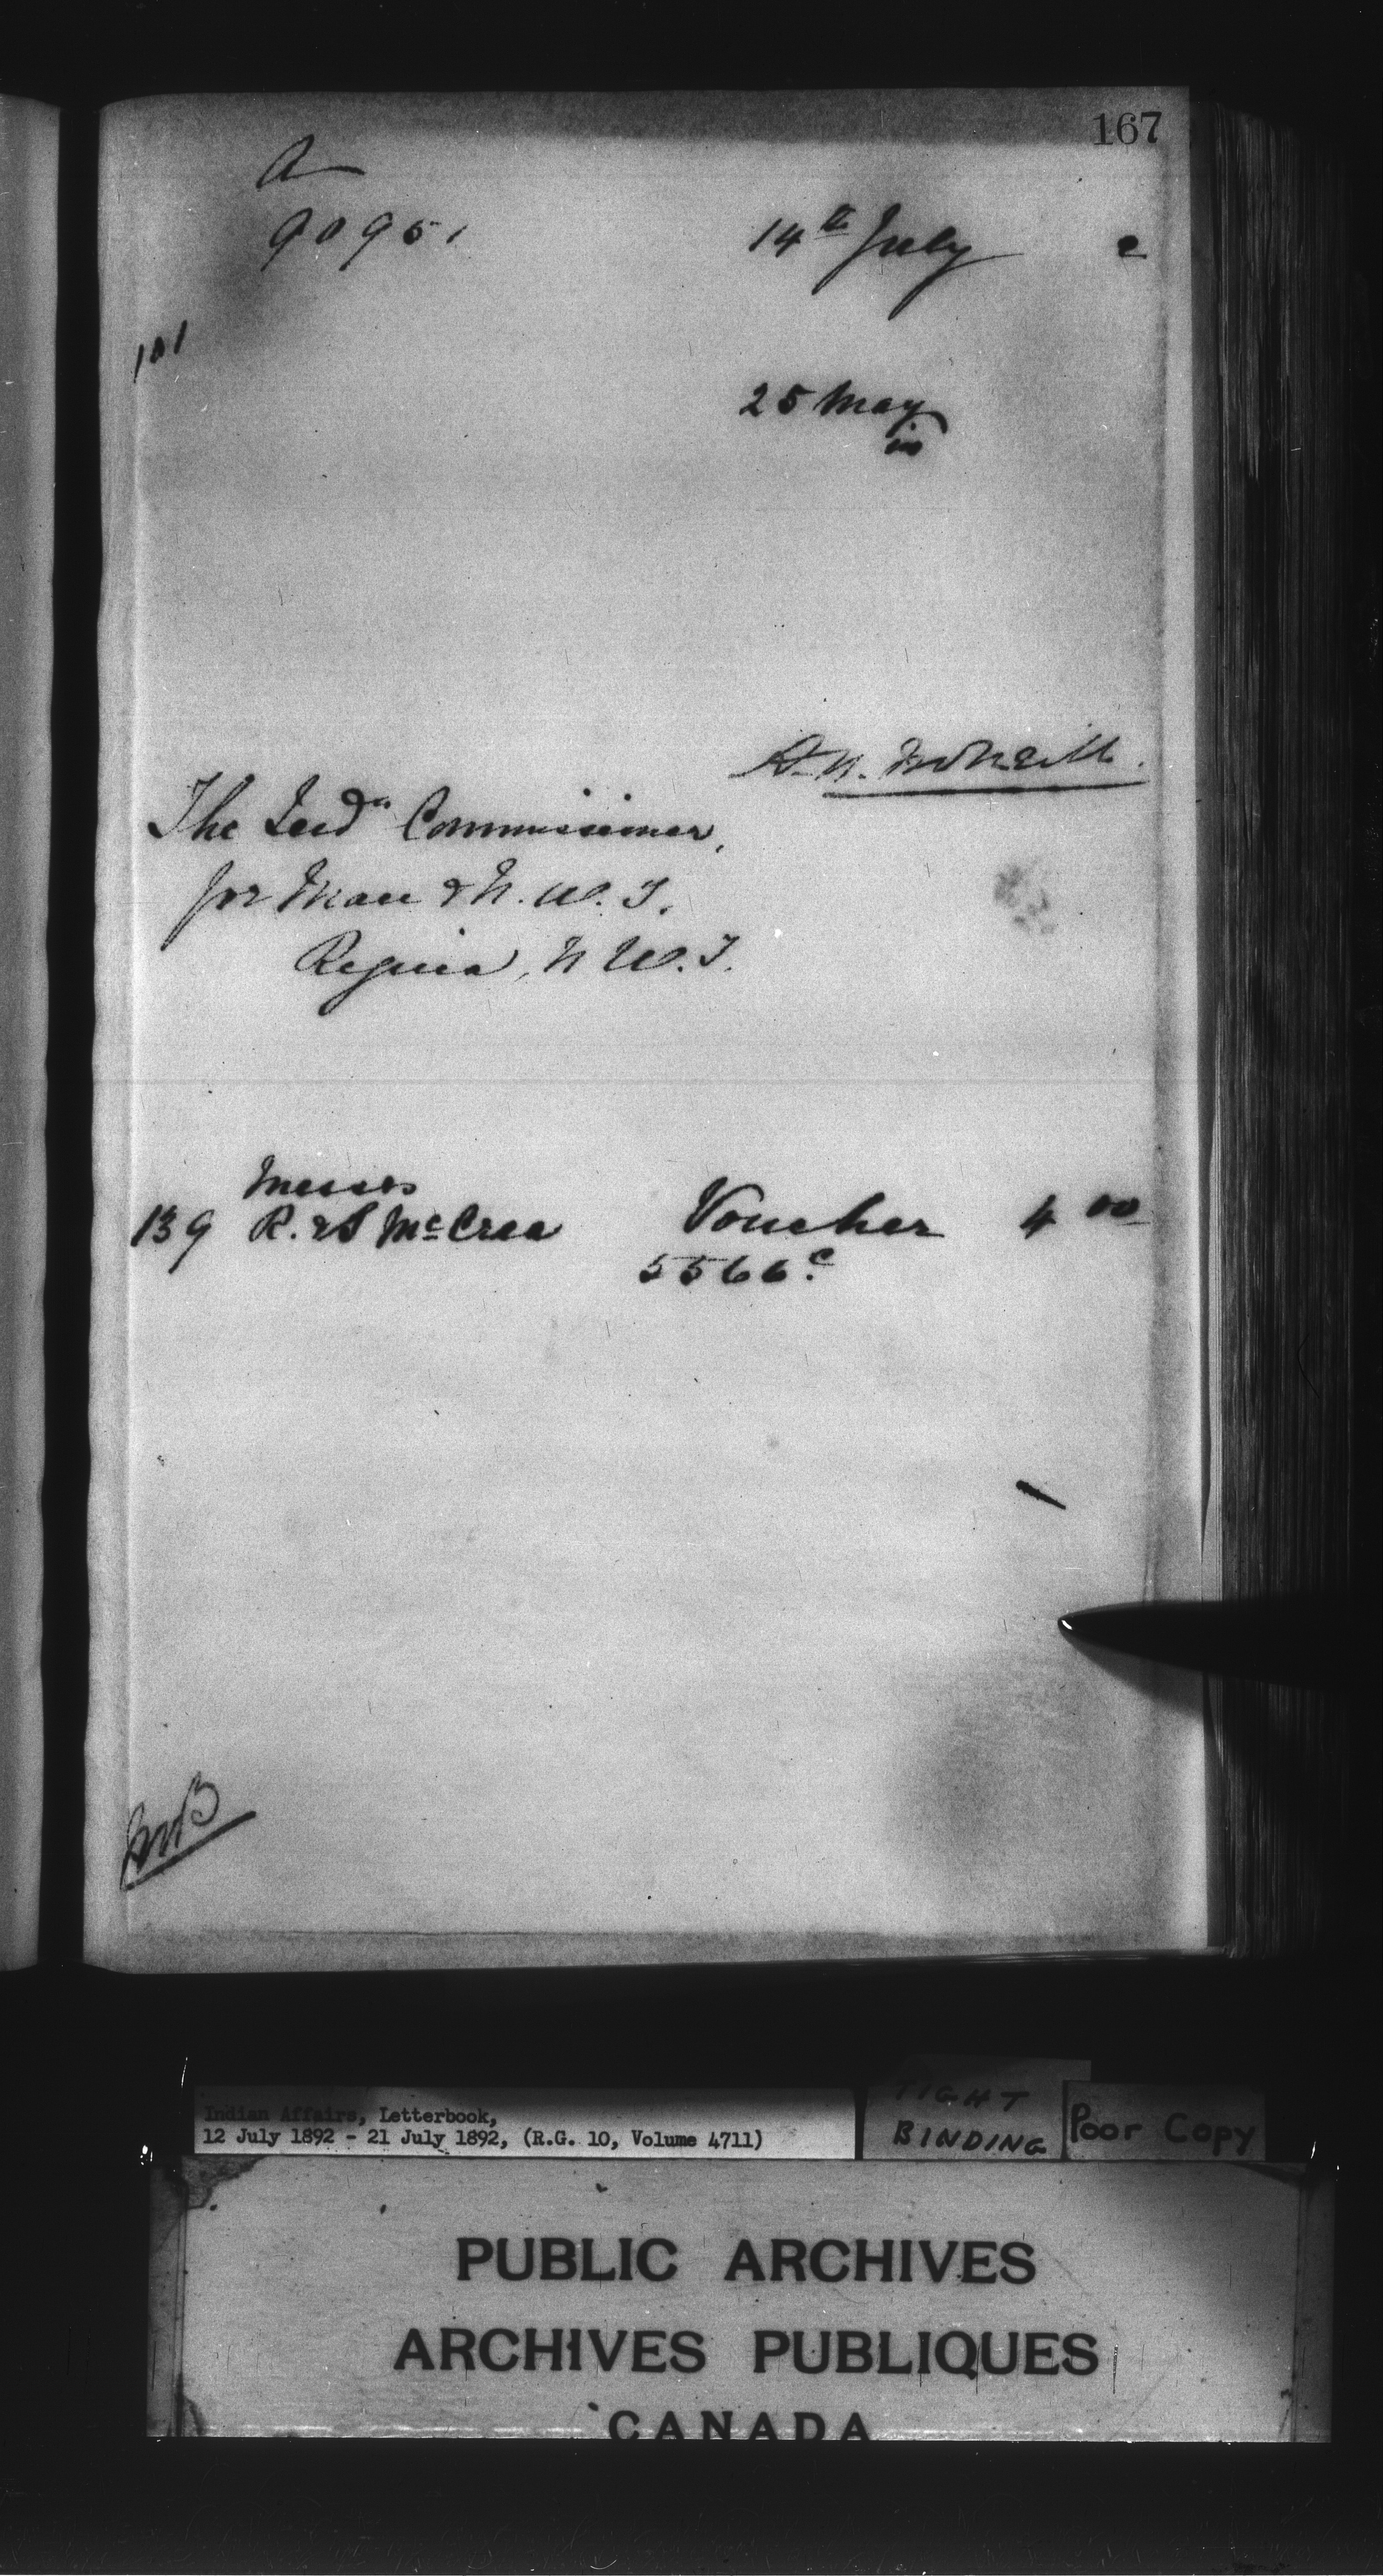 167
A
90951
14th July 2
101
25 May
in
A. N. McNeill.
The Ind'n Commissioner,
for Man & N. W. T.
Regina, N W. T.
Messrs
139 R. & S McCrea Voucher 4 00
5566 c
Indian Affairs, Letterbook,
12 July 1892 - 21 July 1892, (R.G. 10, Volume 4711)
TIGHT
BINDING
Poor Copy
PUBLIC ARCHIVES
ARCHIVES PUBLIQUES
CANADA